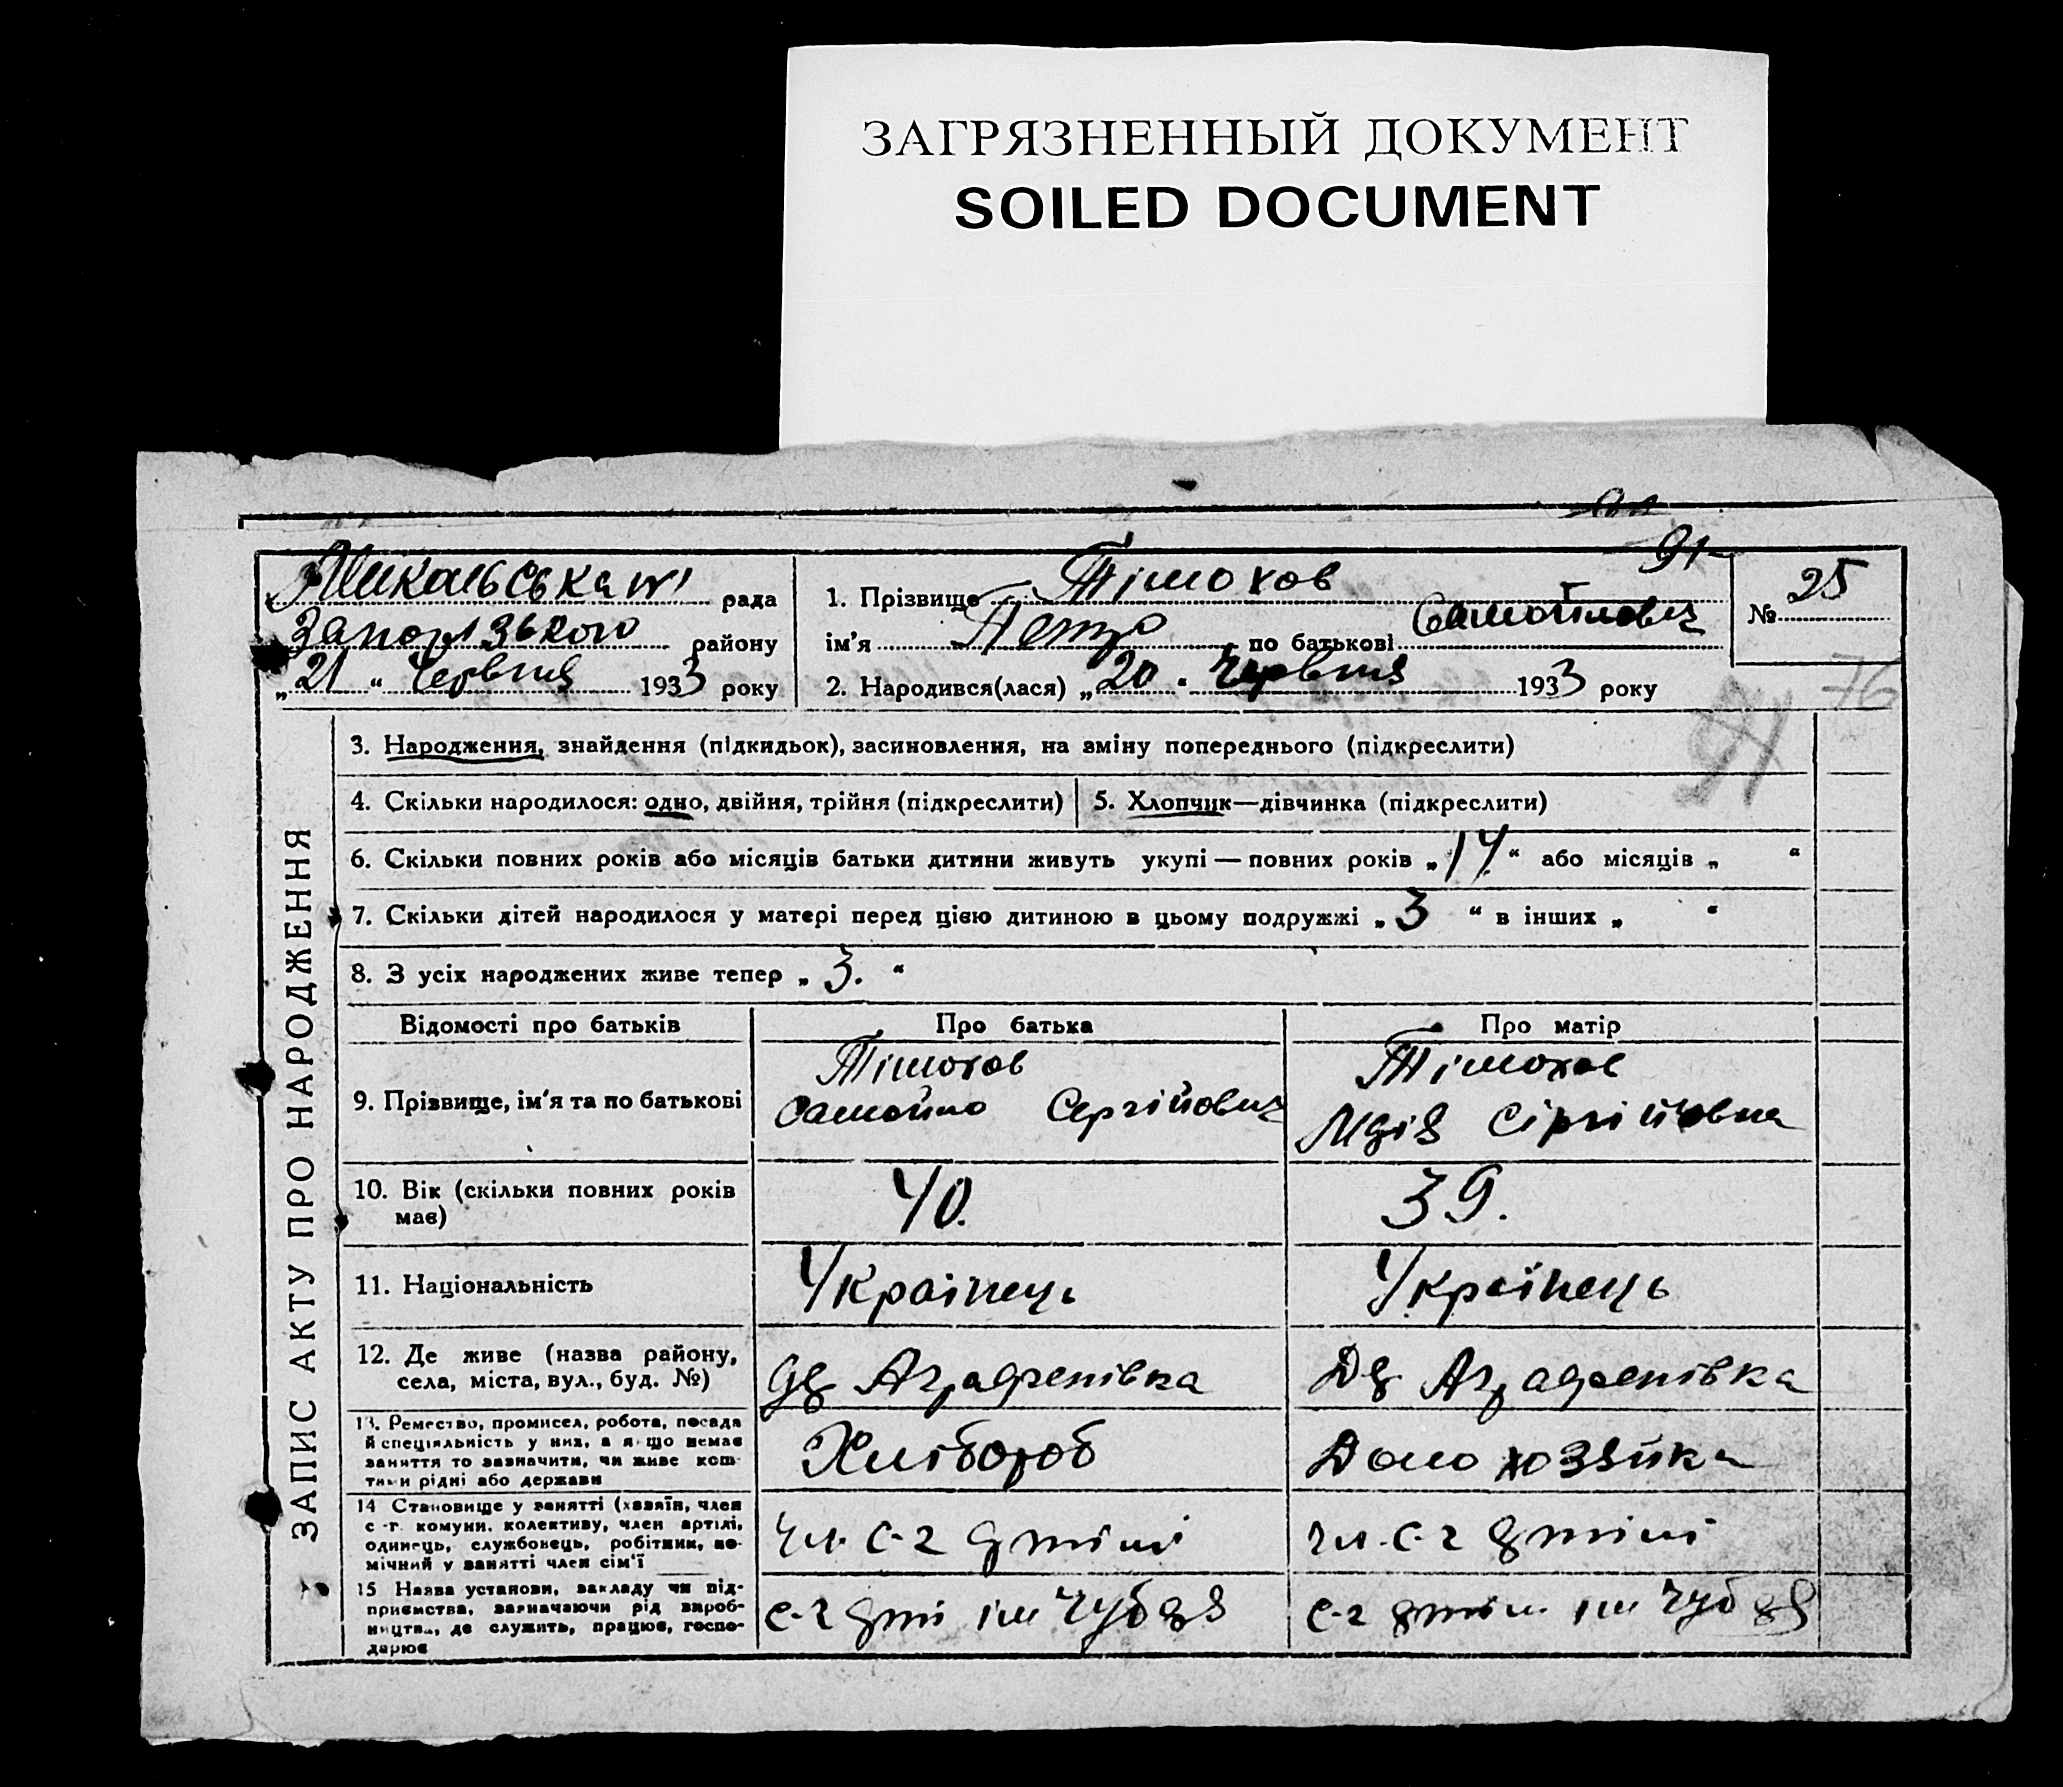 ЗАГРЯЗНЕННЫЙ ДОКУМЕНТ
SOILED DOCUMENT
91
Микольська рада
Запорізького району
„21“ Червня 1933 року
1. Прізвище Тімохов
ім'я Петро, по батькові Самойлович
2. Народився(лася) „20“ Червня 1933 року
№ 25
76
91
ЗАПИС АКТУ ПРО НАРОДЖЕННЯ
3. Народження, знайдення (підкидьок), засиновлення, на зміну попереднього (підкреслити)
4. Скільки народилося: одно, двійня, трійня (підкреслити)
5. Хлопчик—дівчинка (підкреслити)
6. Скільки повних років або місяців батьки дитини живуть укупі — повних років „14.“ або місяців „ “
7. Скільки дітей народилося у матері перед цією дитиною в цьому подружжі „3“ в інших „ “
8. З усіх народжених живе тепер „3.“
Відомості про батьків
Про батька
Про матір
9. Прізвище, ім'я та по батькові
Тімохов
Самойло Сергійович
Тімохов
Сіргійовна
10. Вік (скільки повних років має)
40.
39.
11. Національність
Українець
Українець
12. Де живе (назва району,
села, міста, вул., буд. №)
Аграфенівка
Аграфенівка
13. Ремество, промисел, робота, посада
й спеціяльність у них, а якщо немає
заняття то зазначити, чи живе кош-
тами рідні або держави
Хлібороб
Домохозяйка
14 Становище у занятті (хазяїн, член
с.-г. комуни, колективу, член артілі,
одинець, службовець, робітник, по-
мічний у занятті член сім'ї
чл. с-г артілі
чл. с-г артілі
15 Назва установи, закладу чи під-
приємства, зазначаючи рід вироб-
ництва, де служить, працює, госпо-
дарює
с-г арті ім Чубаря
с-г артіл ім Чубаря